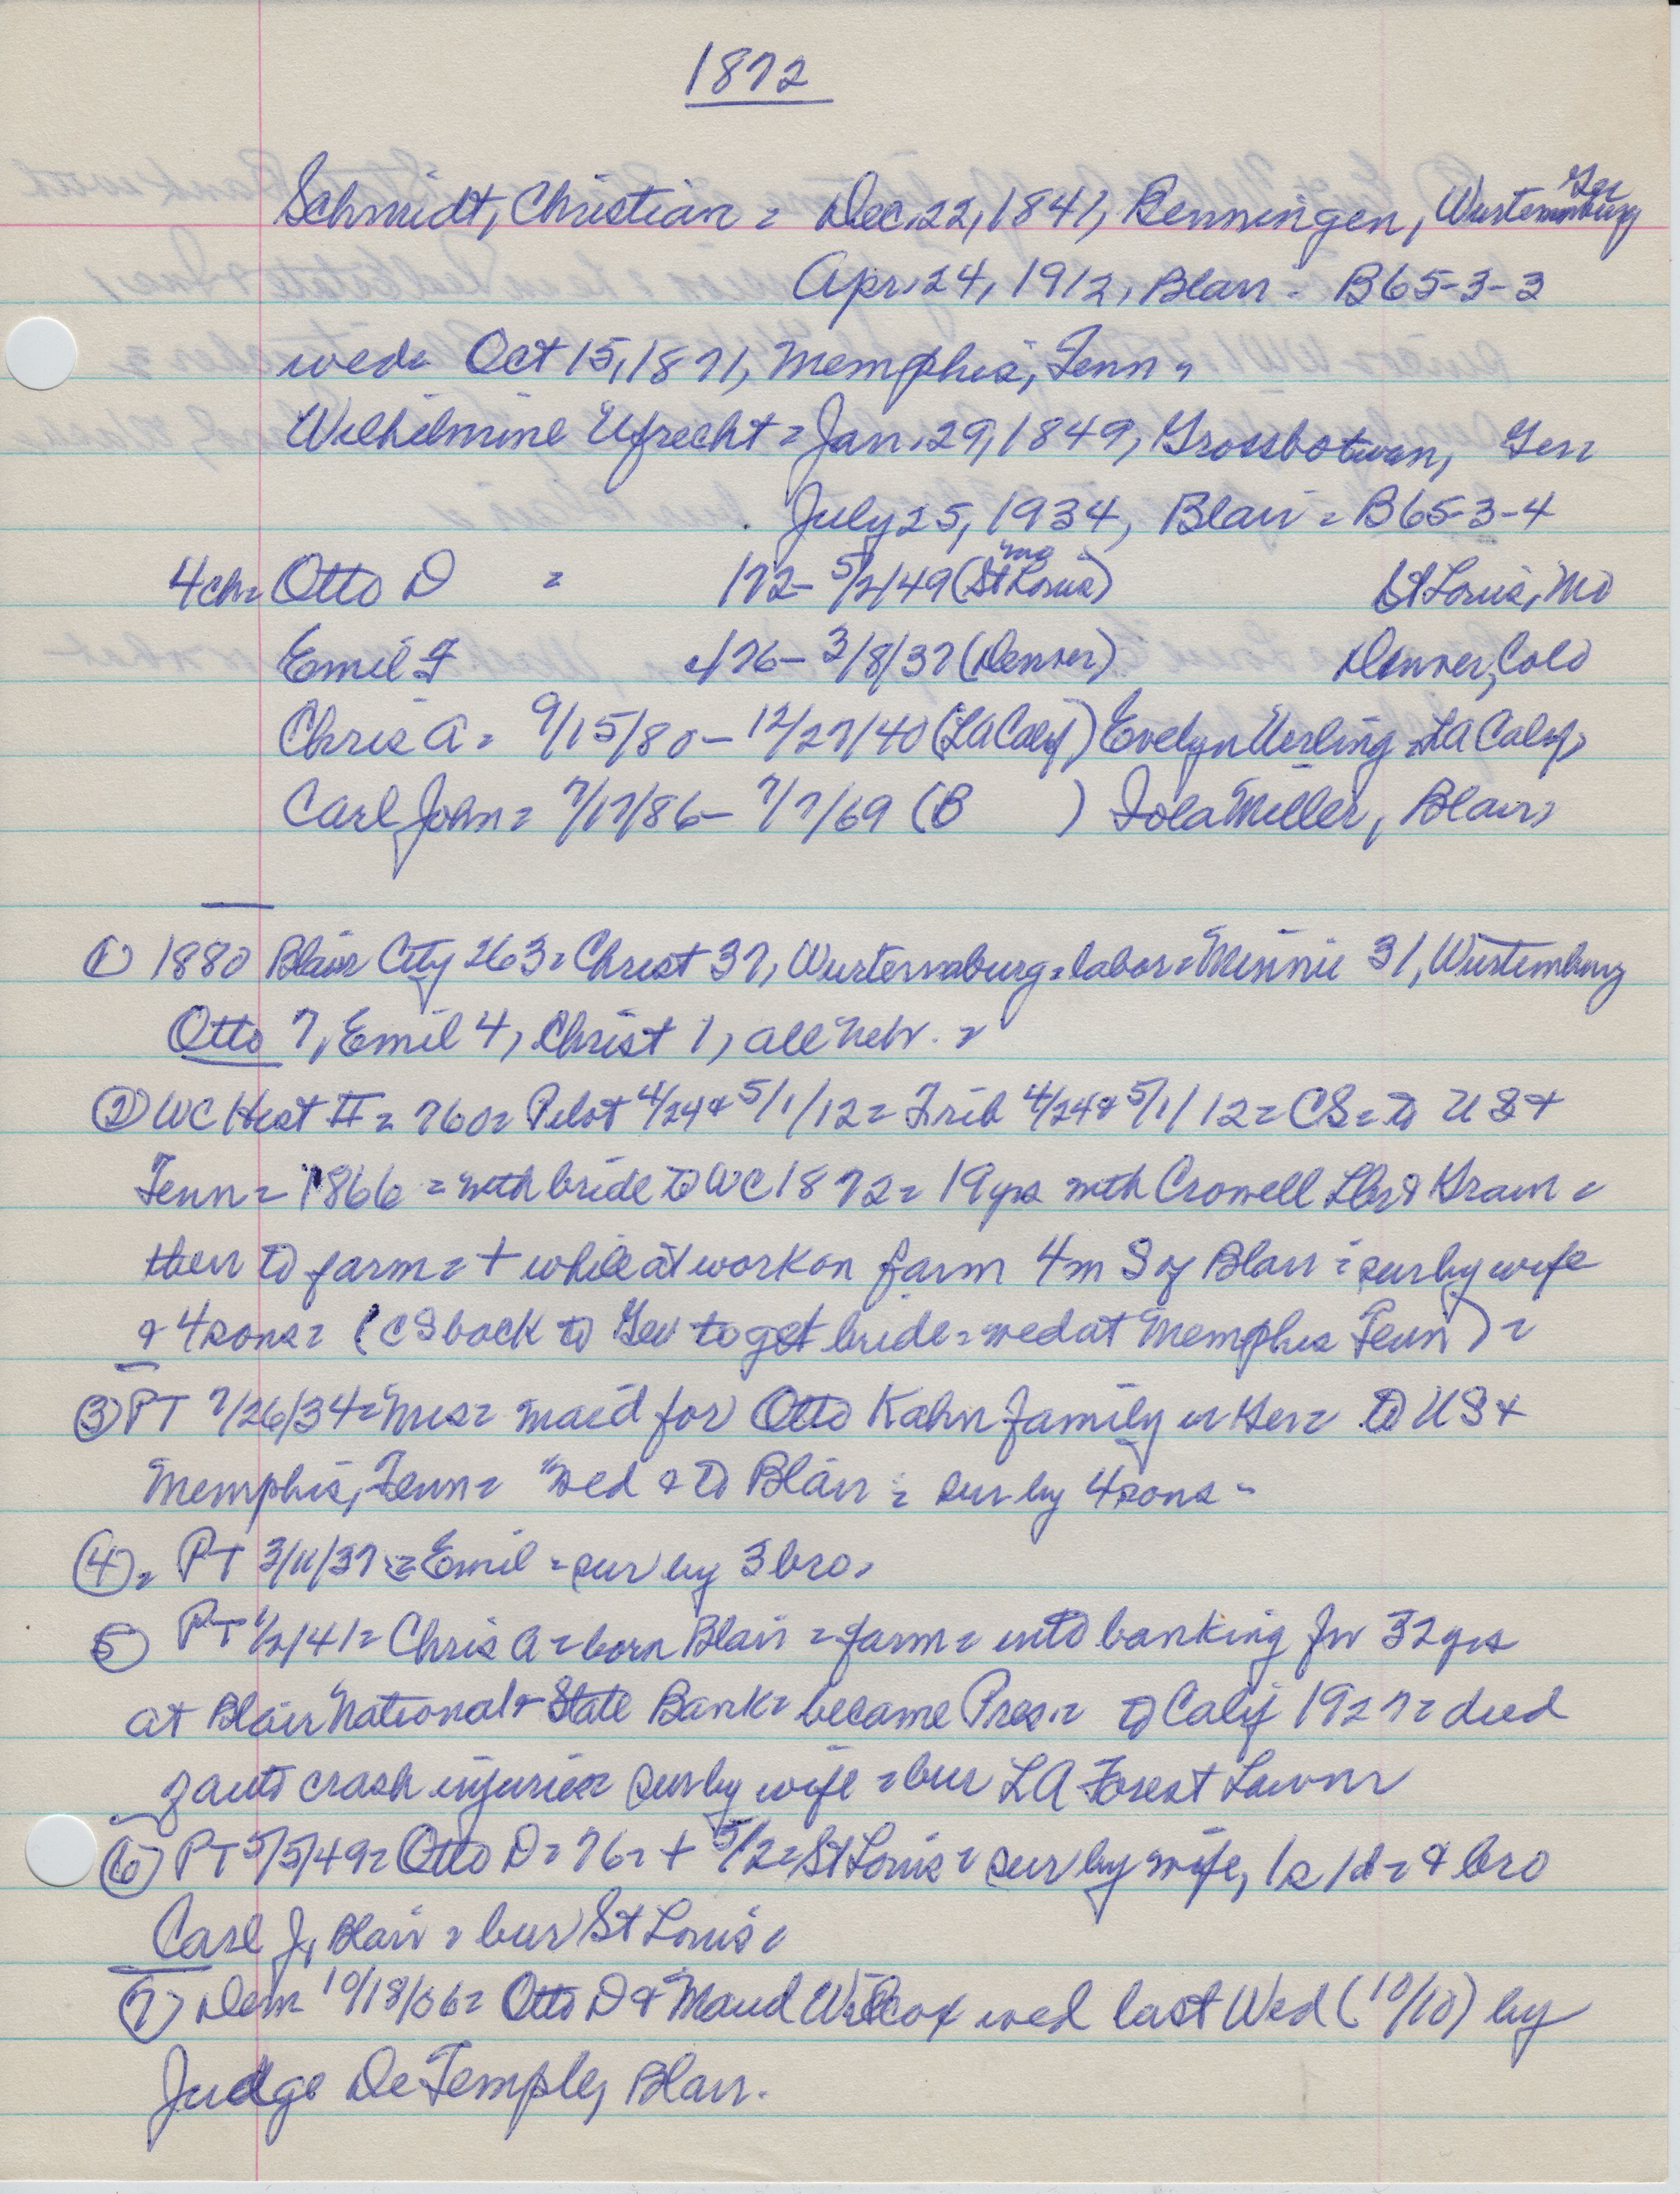 1872
Schmidt, Christian = Dec. 22, 1841, Benningen, Wurtemburg Ger
Apr. 24, 1912, Blair - B65-3-3
wed= Oct 15, 1871, Memphis, Tenn =
Wilhilmine Ufrecht = Jan. 29, 1849, Grossbotwan, Ger=
July 25, 1934, Blair = B65-3-4
4ch= Otto D = 172- 5/2/49 (St Louis Mo) St Louis, Mo
Emil F 176- 3/8/37 (Denver) Denver, Colo
Chris A = 9/15/80 - 12/27/40 (LA Calif) Evelyn Uerling = LA Calif,
Carl John = 7/17/86 - 7/7/69 (B ) Iola Miller, Blair,
① 1880 Blair City 263 = Christ 37, Wurtemaburg = labor = Minnie 31, Wurtemburg
Otto 7, Emil 4, Christ 1, all Nebr. =
② WC Hist II = 760 = Pilot 4/24 & 5/1/12 = Trib 4/24 & 5/1/12 = CS = to US &
Tenn = 1866 = with bride to WC 1872 = 19 yrs with Crowell Lbr & Grain =
then to farm = + while at work on farm 4m S of Blair = sur by wife
& 4 sons = (CS back to Ger to get bride = wed at Memphis Tenn) =
③ PT 7/26/34 = Mrs = maid for Otto Kahn family in Ger = to US &
Memphis, Tenn = wed & to Blair = sur by 4 sons -
④ = PT 3/11/37 = Emil = sur by 3 bro.
⑤ PT 1/2/41 = Chris A = born Blair = farm = into banking for 32 yrs
at Blair National & State Bank = became Pres. = to Calif 1927 = died
of auto crash injuries = sur by wife = bur LA Forest Lawn
⑥ PT 5/5/49 = Otto D = 76 = + 5/2 = St Louis = sur by wife, 1s 1d = & bro
Carl J, Blair = bur St Louis =
⑦ Dem 10/18/06 = Otto D & Maud Wilcox wed last Wed (10/10) by
Judge DeTemple, Blair.